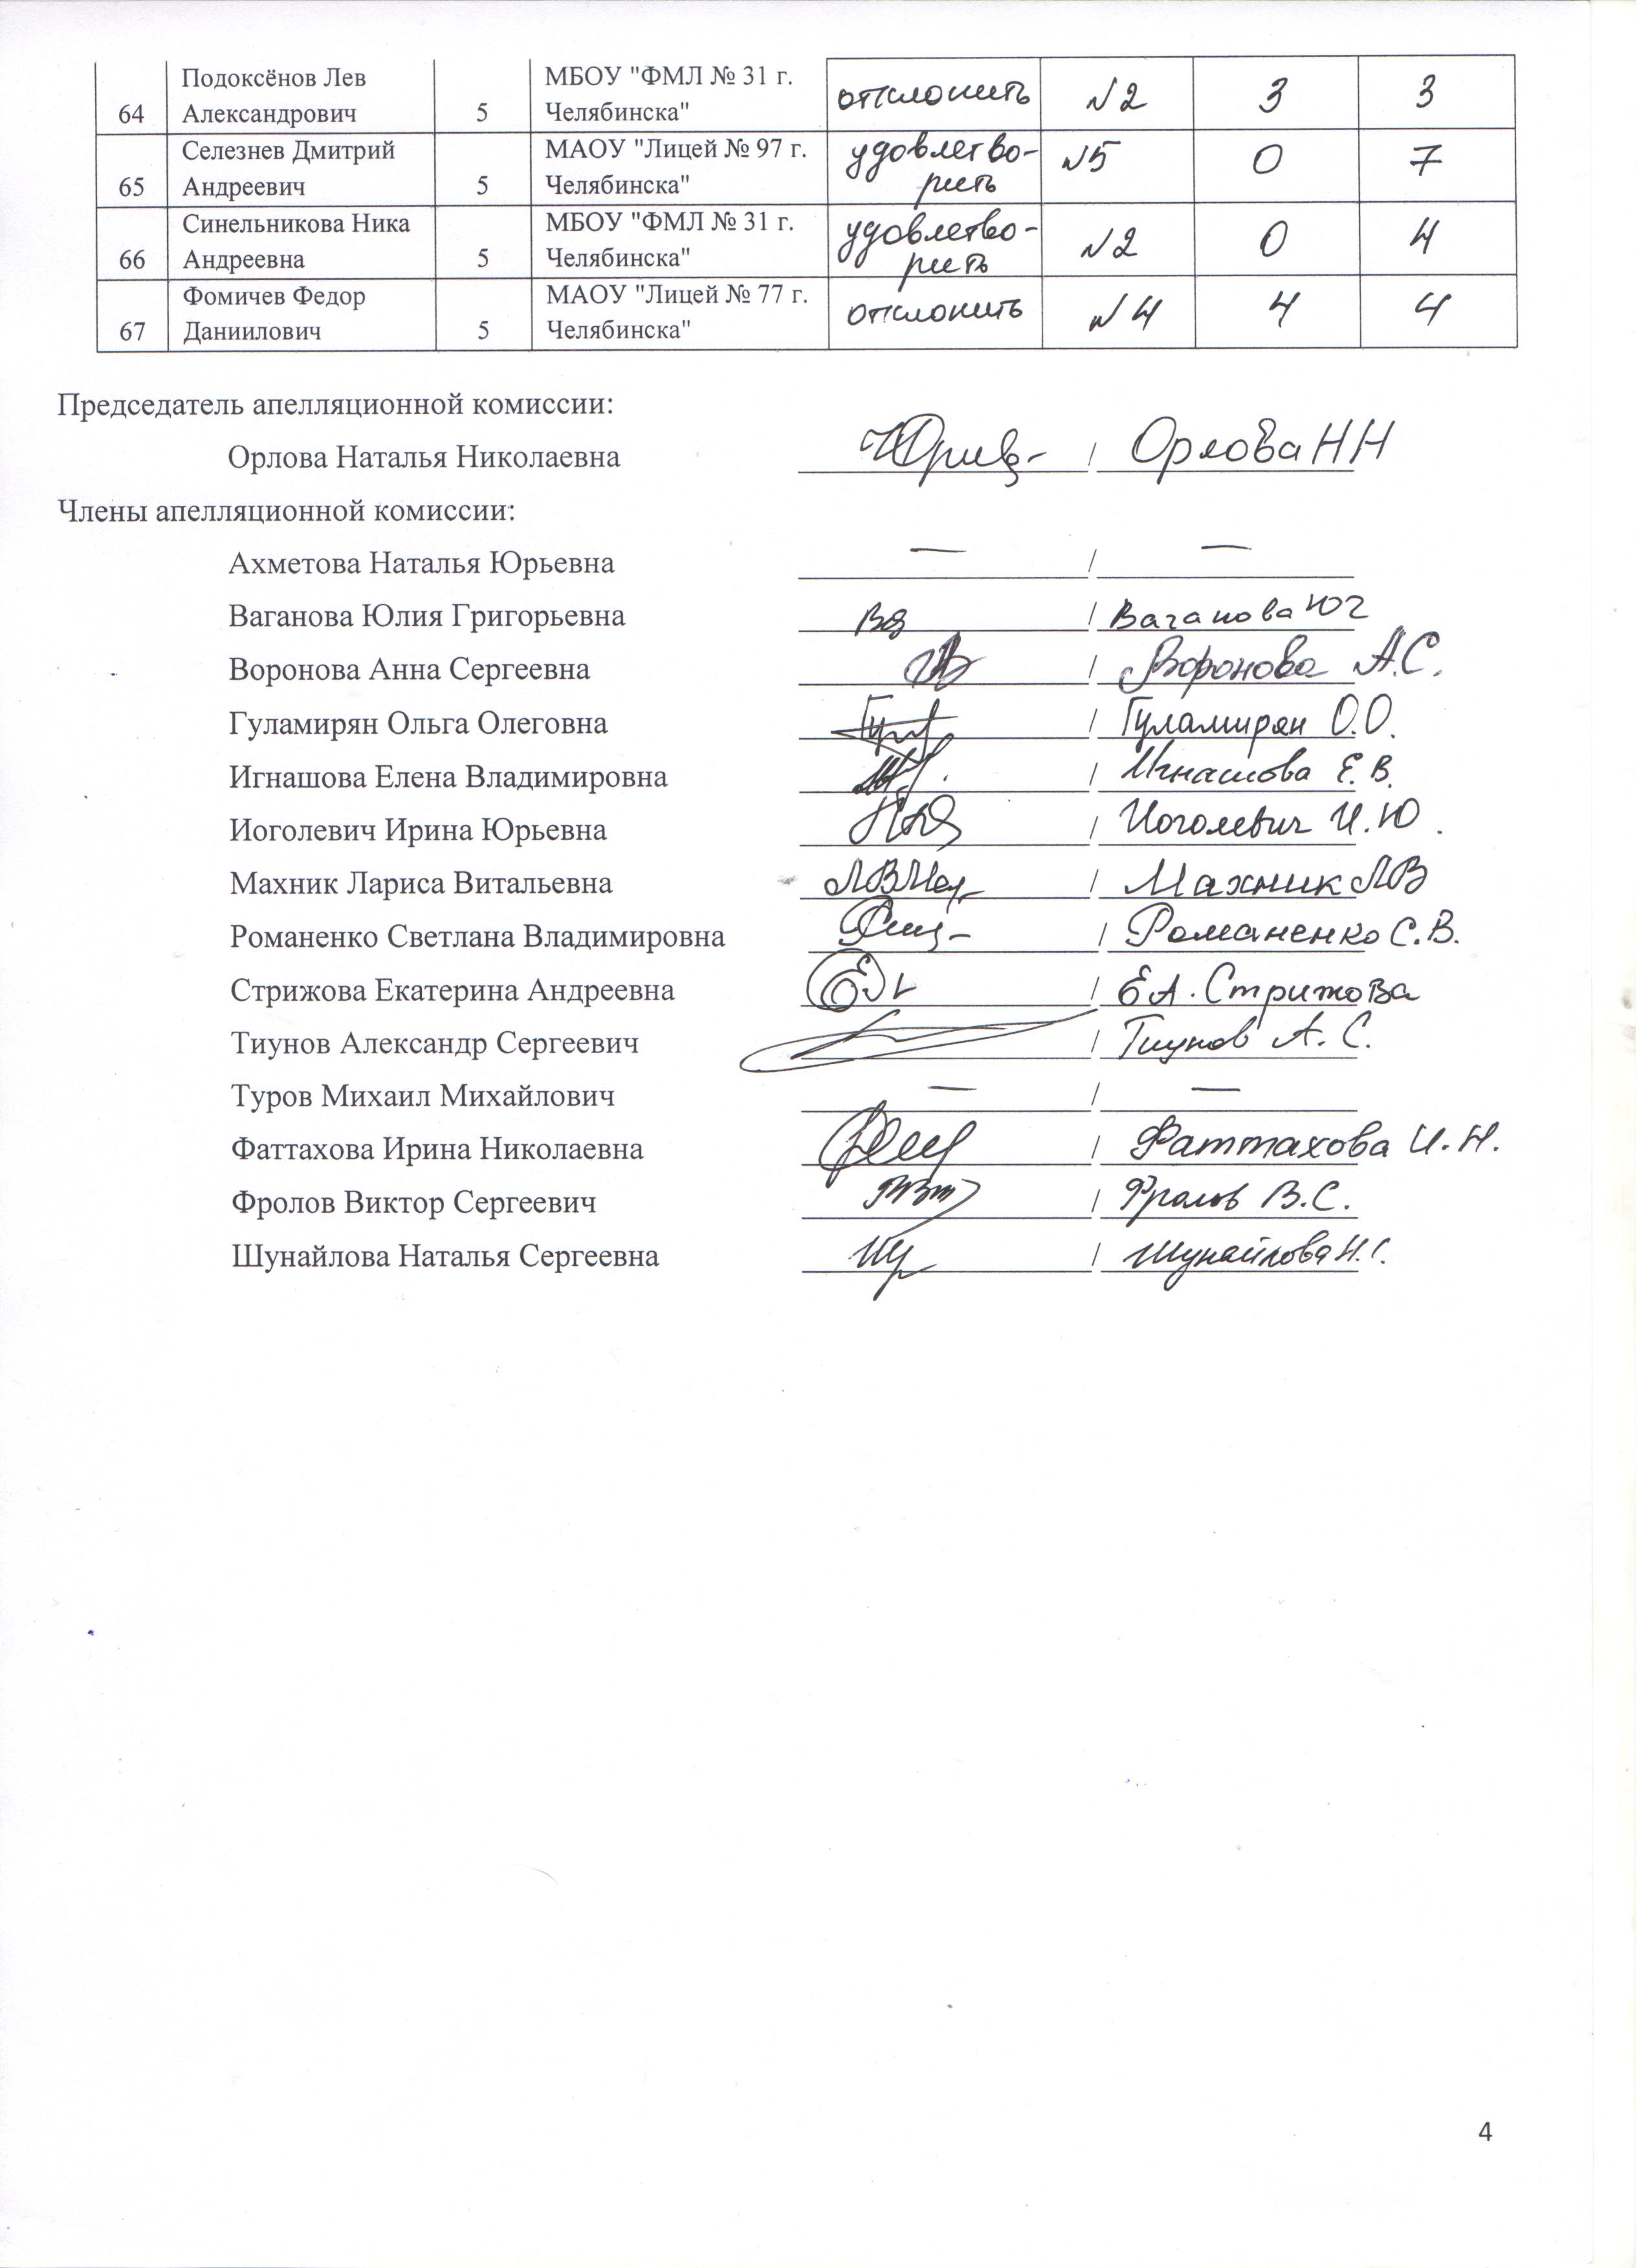 Подоксёнов Лев МБОУ "ФМЛ № 31 г.
64 Александрович 5 Челябинска" отклонить №2 3 3
Селезнев Дмитрий МАОУ "Лицей № 97 г. удовлетво-
65 Андреевич 5 Челябинска" рить №5 0 7
Синельникова Ника МБОУ "ФМЛ № 31 г. удовлетво-
66 Андреевна 5 Челябинска" рить №2 0 4
Фомичев Федор МАОУ "Лицей № 77 г.
67 Даниилович 5 Челябинска" отклонить №4 4 4
Председатель апелляционной комиссии:
Орлова Наталья Николаевна / Орлова НН
Члены апелляционной комиссии:
Ахметова Наталья Юрьевна — / —
Ваганова Юлия Григорьевна / Ваганова ЮГ
Воронова Анна Сергеевна / Воронова А.С.
Гуламирян Ольга Олеговна / Гуламирян О.О.
Игнашова Елена Владимировна / Игнашова Е.В.
Иоголевич Ирина Юрьевна / Иоголевич И.Ю.
Махник Лариса Витальевна / Махник ЛВ
Романенко Светлана Владимировна / Романенко С.В.
Стрижова Екатерина Андреевна / ЕА. Стрижова
Тиунов Александр Сергеевич / Тиунов А.С.
Туров Михаил Михайлович — / —
Фаттахова Ирина Николаевна / Фаттахова И.Н.
Фролов Виктор Сергеевич / Фролов В.С.
Шунайлова Наталья Сергеевна / Шунайлова Н.С.
4